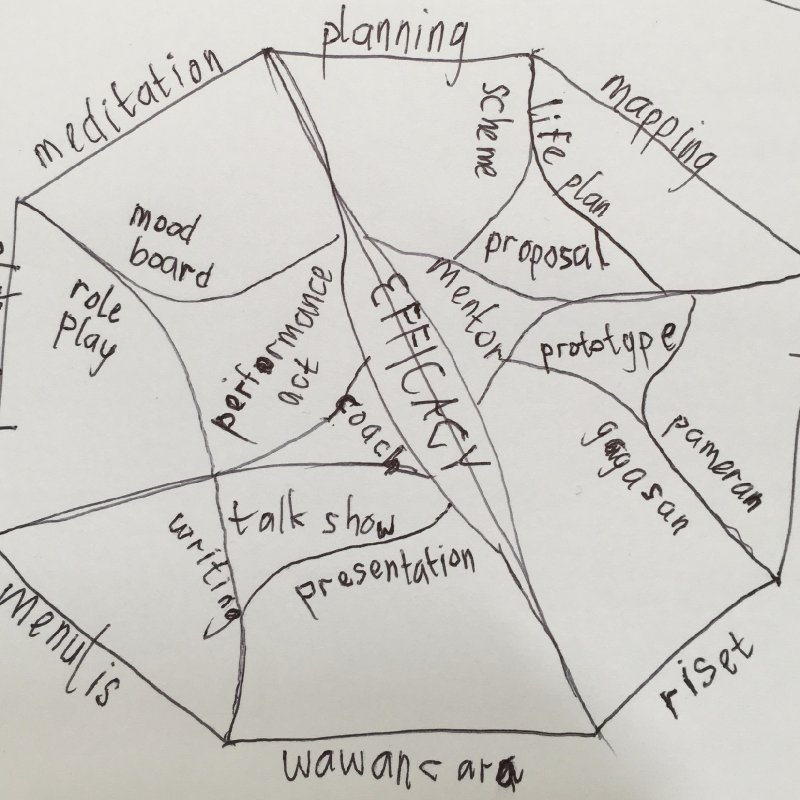 planning
meditation
mapping
scheme
life plan
mood
board
proposal
role
play
mentor
EFFICACY
performance
act
prototype
coach
gagasan
pameran
talk show
writing
presentation
menulis
riset
wawancara